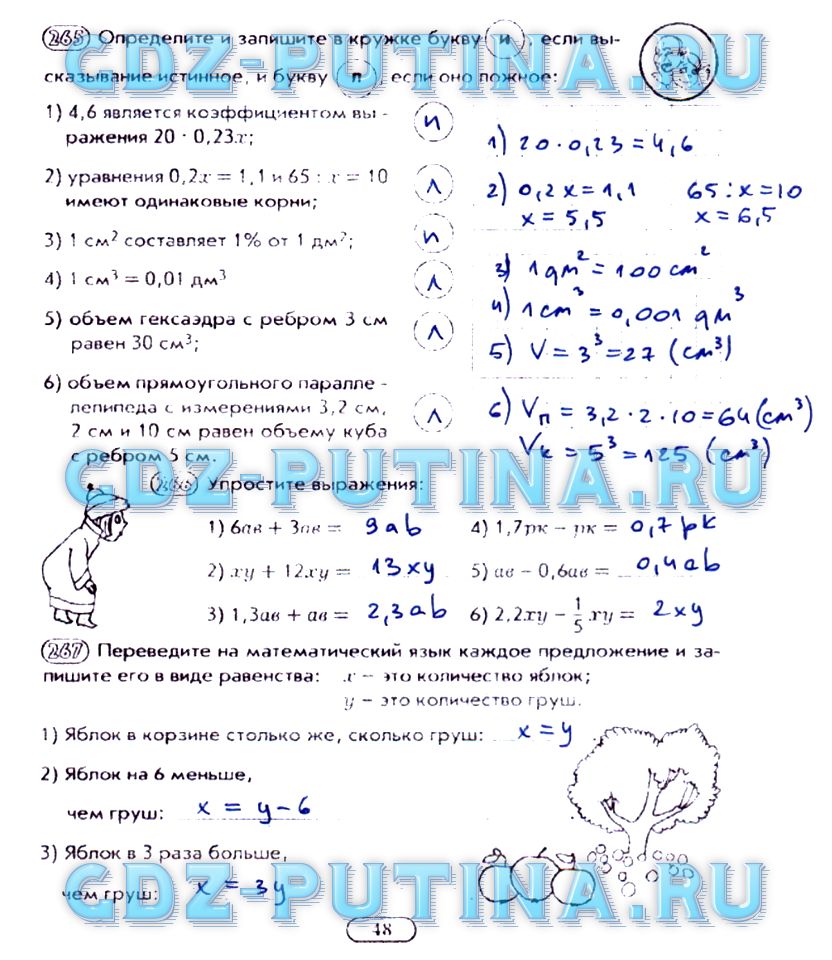 265 Определите и запишите в кружке букву и, если вы-
сказывание истинное, и букву л, если оно ложное:
GDZ-PUTINA.RU
1) 4,6 является коэффициентом вы-
ражения 20 · 0,23x; и
1) 20·0,23=4,6
2) уравнения 0,2x = 1,1 и 65 : x = 10
имеют одинаковые корни; л
2) 0,2x=1,1 65:x=10
x=5,5 x=6,5
3) 1 см² составляет 1% от 1 дм²; и
3) 1 дм²=100 см²
4) 1 см³ = 0,01 дм³ л
4) 1 см³=0,001 дм³
5) объем гексаэдра с ребром 3 см
равен 30 см³; л
5) V=3³=27 (см³)
6) объем прямоугольного паралле-
лепипеда с измерениями 3,2 см,
2 см и 10 см равен объему куба
с ребром 5 см. л
6) Vп = 3,2·2·10=64(см³)
Vк=5³=125 (см³)
GDZ-PUTINA.RU
266 Упростите выражения:
1) 6ав + 3ав = 9ab 4) 1,7рк − рк = 0,7pk
2) xy + 12xy = 13xy 5) ав − 0,6ав = 0,4ab
3) 1,3ав + ав = 2,3ab 6) 2,2xy − 1/5 xy = 2xy
267 Переведите на математический язык каждое предложение и за-
пишите его в виде равенства: x − это количество яблок;
y − это количество груш.
1) Яблок в корзине столько же, сколько груш: x=y
2) Яблок на 6 меньше,
чем груш: x = y−6
3) Яблок в 3 раза больше,
чем груш: x = 3y
GDZ-PUTINA.RU
48